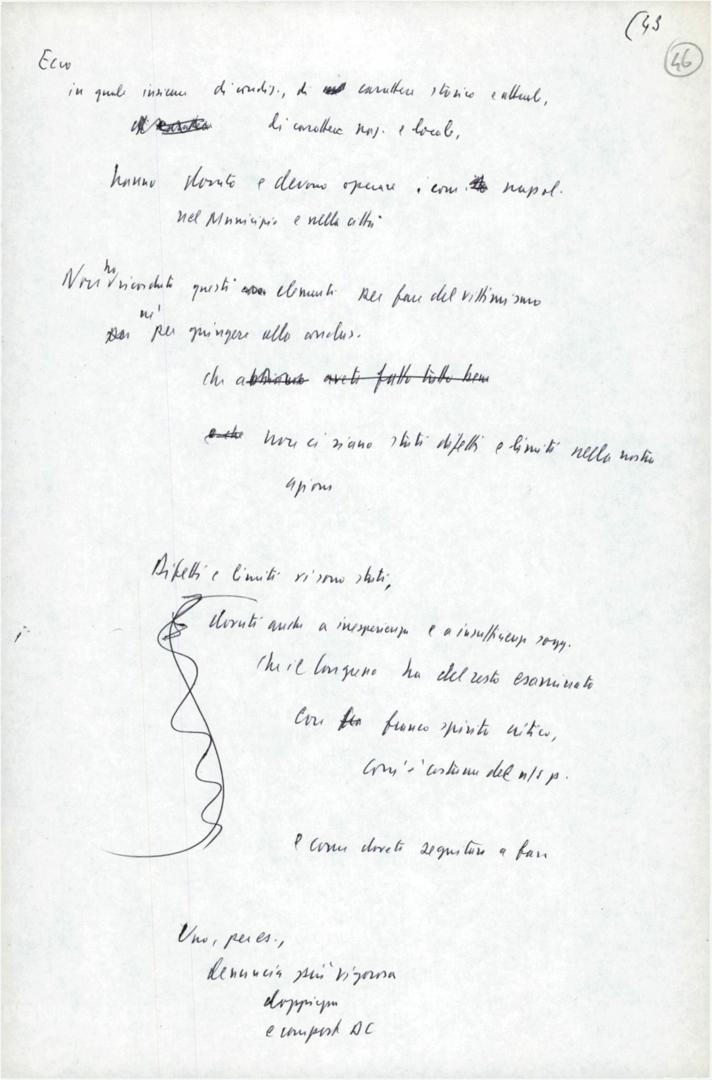 (43
46
Ecco
in quale insieme di condiz., di carattere storico e attuale,
di carattere naz. e locale,
hanno dovuto e devono operare i com. napol.
nel Municipio e nella città
Non ho ricordato questi elementi per fare del vittimismo
né per giungere alla conclus.
che abbiamo avete fatto tutto bene
e che non ci siano stati difetti e limiti nella nostra
azione
Difetti e limiti vi sono stati,
dovuti anche a inesperienza e a insufficienze sogg.
che il Congresso ha del resto esaminato
con franco spirito critico,
com'è costume del n/s p.
e come dovete seguitare a fare
Uno, per es.,
denuncia più vigorosa
doppiezza
e comport. DC